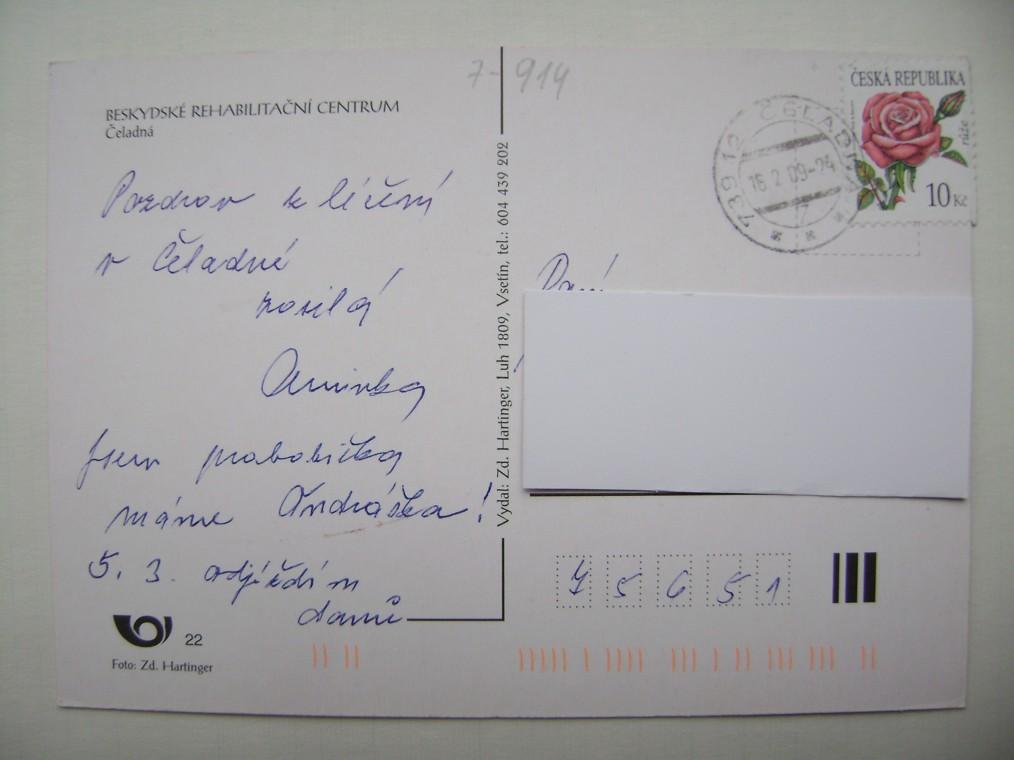 7-914
BESKYDSKÉ REHABILITAČNÍ CENTRUM
Čeladná
ČESKÁ REPUBLIKA
růže
10 Kč
739 12 ČELADNÁ
16.2.09-24
Pozdrav z léčení
v Čeladné
posílá
Aninka
Jsem prababička
máme Ondráška!
5. 3. odjíždím
domů
Vydal: Zd. Hartinger, Luh 1809, Vsetín, tel.: 604 439 202
Paní
7 5 6 5 1
22
Foto: Zd. Hartinger